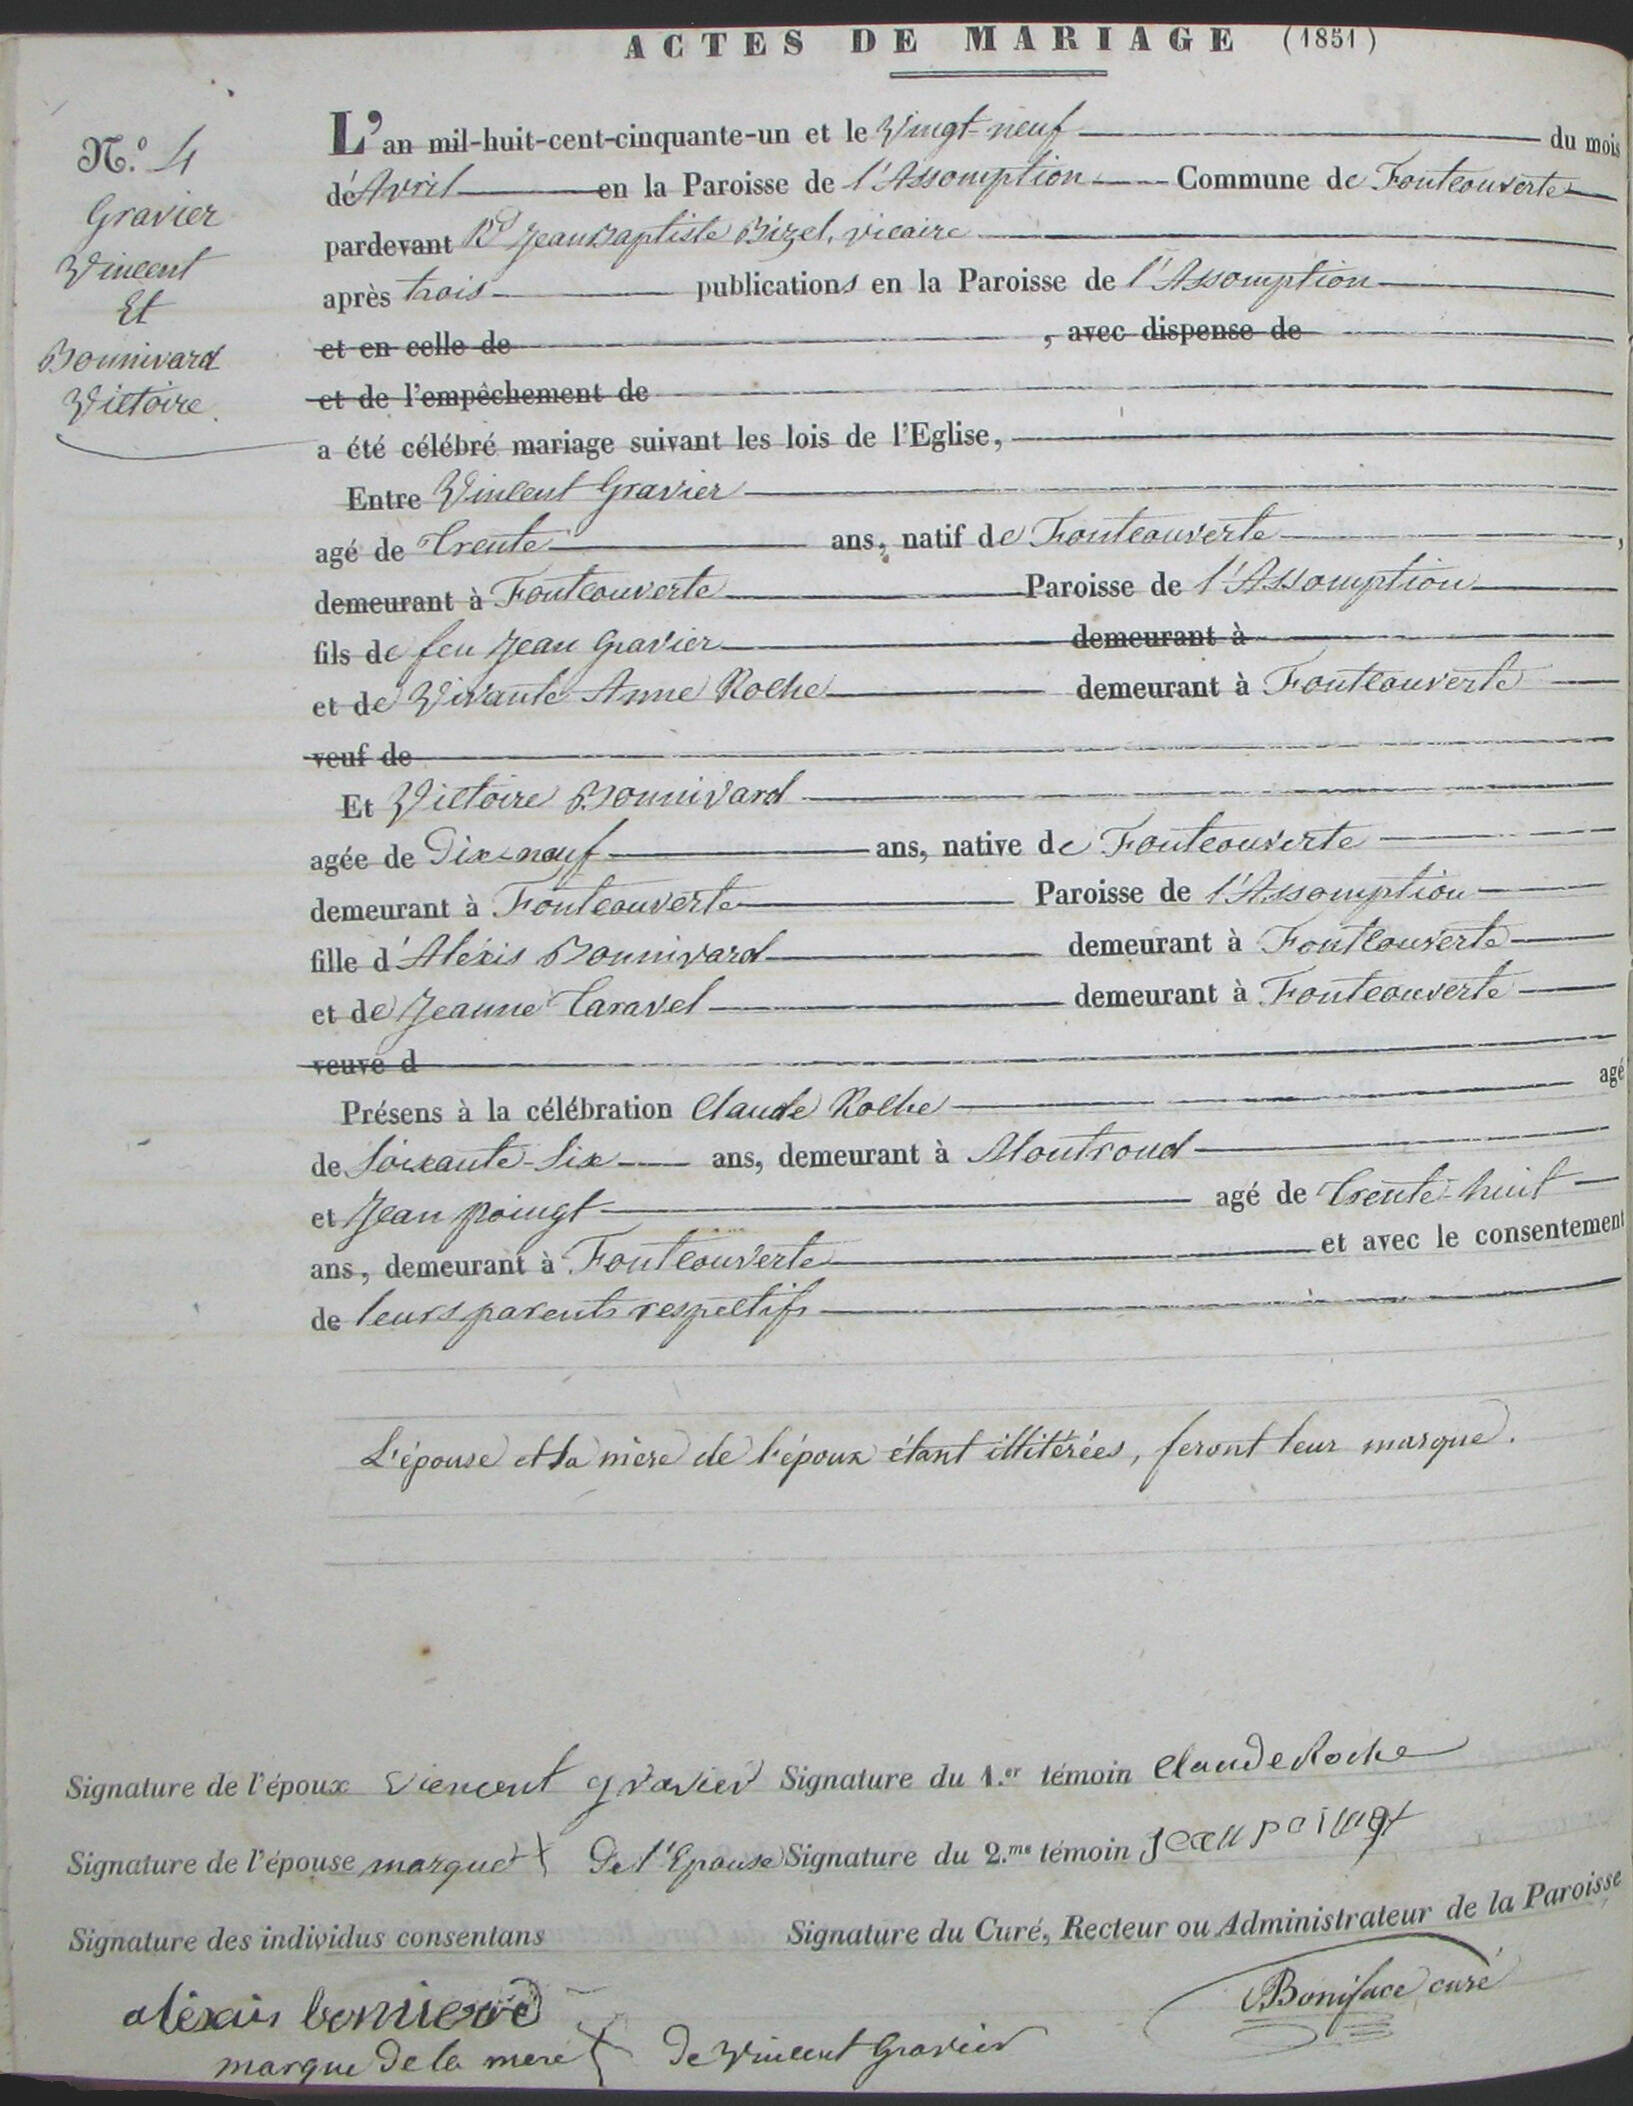 ACTES DE MARIAGE (1851)
N.º 4
Gravier
Vincent
Et
Bonnivard
Victoire
L'an mil-huit-cent-cinquante-un et le Vingt-neuf du mois
d'Avril en la Paroisse de l'Assomption Commune de Fontcouverte
pardevant Rd Jean Baptiste Bizel, vicaire
après trois publications en la Paroisse de l'Assomption
et en celle de , avec dispense de
et de l'empêchement de
a été célébré mariage suivant les lois de l'Eglise,
Entre Vincent Gravier
agé de Trente ans, natif de Fontcouverte ,
demeurant à Fontcouverte Paroisse de l'Assomption
fils de feu Jean Gravier demeurant à
et de Vivante Anne Roche demeurant à Fontcouverte
veuf de
Et Victoire Bonnivard
agée de Dix-neuf ans, native de Fontcouverte
demeurant à Fontcouverte Paroisse de l'Assomption
fille d'Aléxis Bonnivard demeurant à Fontcouverte
et de Jeanne Taravel demeurant à Fontcouverte
veuve d
Présens à la célébration Claude Roche agé
de Soixante-Six ans, demeurant à Montrond
et Jean poingt agé de Trente-huit
ans, demeurant à Fontcouverte et avec le consentement
de leurs parents respectifs
L'épouse et la mère de l'époux étant illitérées, feront leur marque.
Signature de l'époux viencent gravier Signature du 1.er témoin Claude Roche
Signature de l'épouse marque + De l'Epouse Signature du 2.me témoin Jean poingt
Signature des individus consentans Signature du Curé, Recteur ou Administrateur de la Paroisse
Boniface curé
alexis
marque De la mere + De Vincent Gravier